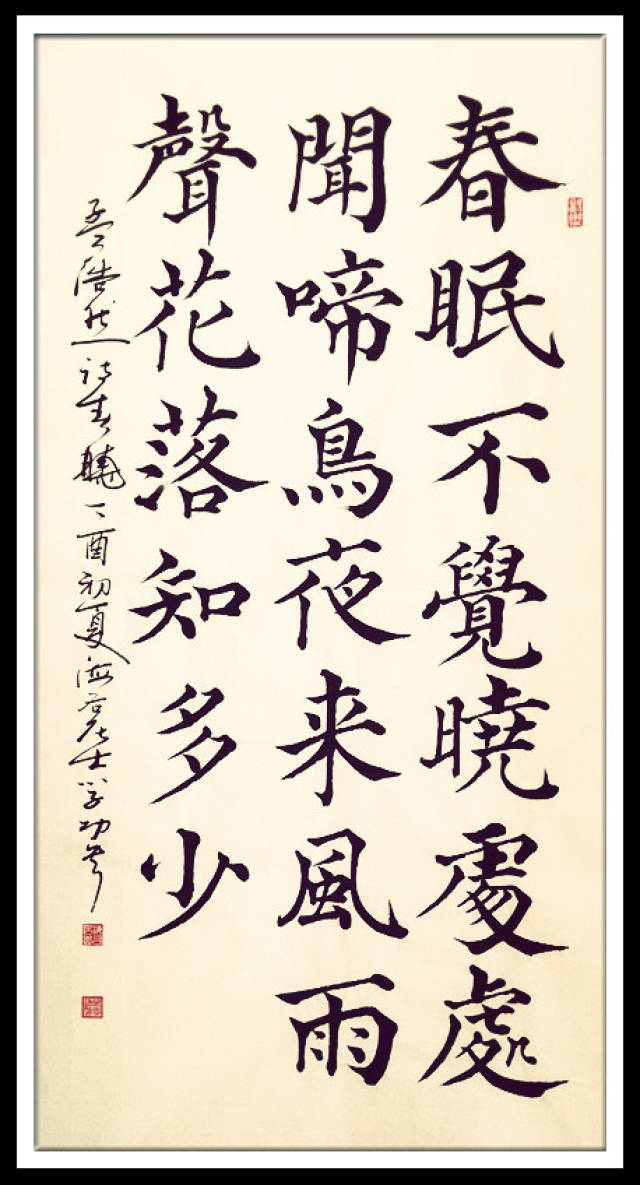 春眠不覺曉處處
聞啼鳥夜来風雨
聲花落知多少
孟浩然诗春曉丁酉初夏海居士学功书